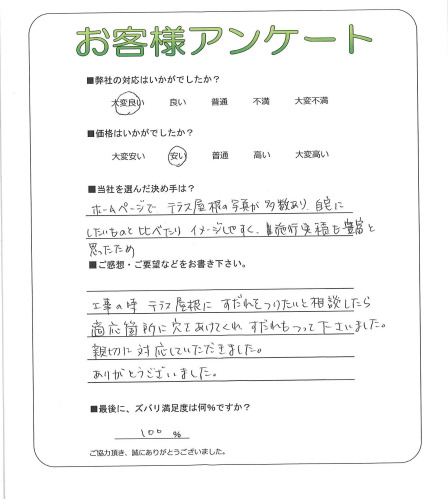 お客様アンケート
■弊社の対応はいかがでしたか?
大変良い 良い 普通 不満 大変不満
■価格はいかがでしたか?
大変安い 安い 普通 高い 大変高い
■当社を選んだ決め手は?
ホームページで テラス屋根の写真が多数あり、自宅に
したいものと比べたり イメージしやすく、施行実積も豊富と
思ったため
■ご感想・ご要望などをお書き下さい。
工事の時 テラス屋根に すだれをつりたいと相談したら
適応箇所に穴をあけてくれ すだれもつって下さいました。
親切に対応していただきました。
ありがとうございました。
■最後に、ズバリ満足度は何%ですか?
100 %
ご協力頂き、誠にありがとうございました。